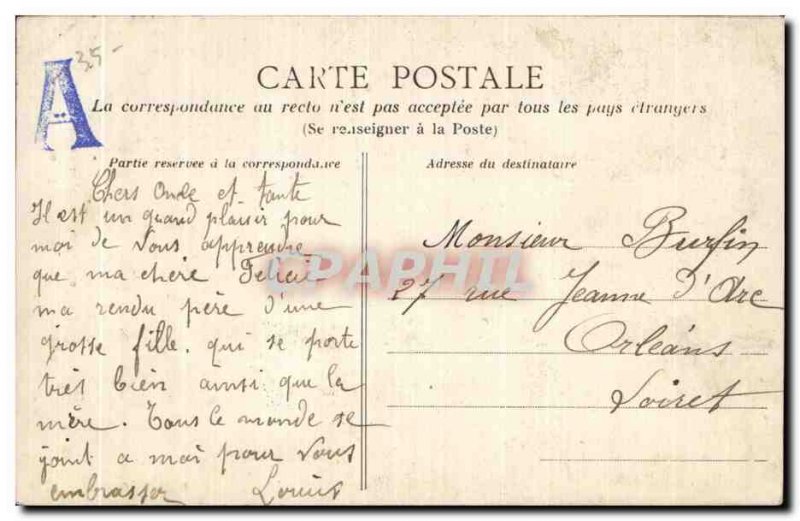 A
35-
CARTE POSTALE
La correspondance au recto n'est pas acceptée par tous les pays étrangers
(Se renseigner à la Poste)
Partie reservee à la correspondance
Chers Oncle et tante
Il est un grand plaisir pour
moi de vous apprendre
que ma chère Felicie
ma rendu père d'une
grosse fille. qui se porte
très bien ainsi que la
mère. Tous le monde se
joint a moi pour vous
embrasser Louis
Adresse du destinataire
Monsieur Burfin
27 rue Jeanne d'Arc
Orléans
Loiret
CPAPHIL